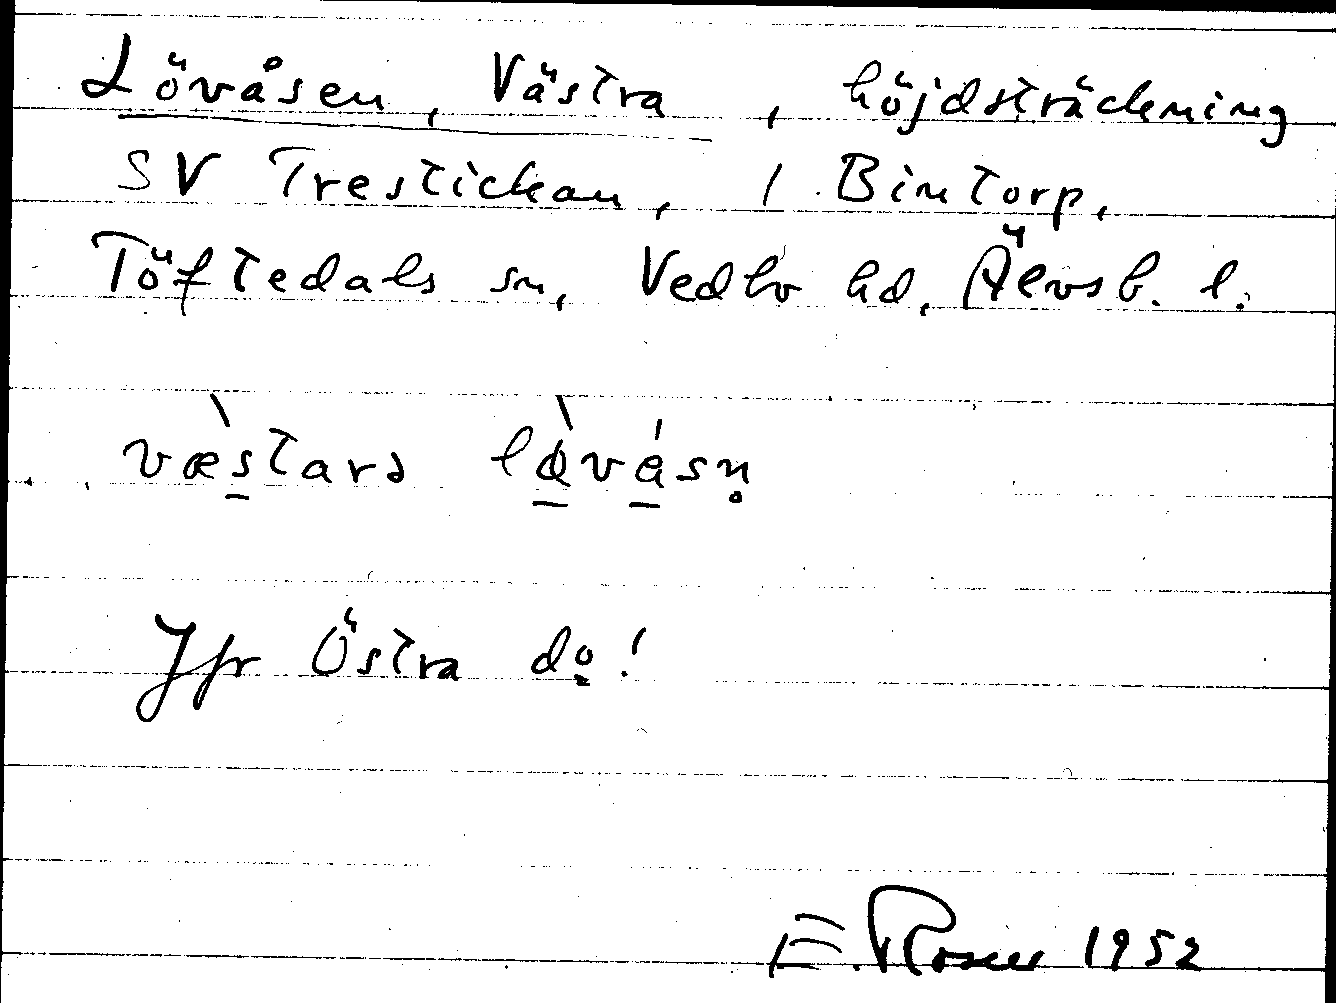 Lövåsen, Västra, höjdsträckning
SV Trestickan, 1 Bintorp,
Töftedals sn, Vedbo hd, Älvsb. l.
væ̀starə lø̀vásn̥
Jfr Östra do!
E. Rosell 1952